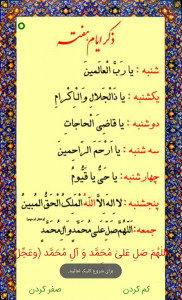 ذکر ایام هفته
شنبه : یا رَبَّ الْعالَمینَ
یکشنبه : یا ذَالْجَلالِ وَالْاِکْرامِ
دوشنبه : یا قاضِیَ الْحاجاتِ
سه شنبه : یا اَرْحَمَ الرّاحِمینَ
چهارشنبه: یا حَیُّ یا قَیُّومُ
پنجشنبه: لا اله اِلَّا اللهُ الْمَلِکُ الْحَقُّ الْمُبینُ
جمعه: اَللّهُمَّ صَلِّ عَلی مُحَمَّدٍ وَ آلِ مُحَمَّدٍ
اللّهُمَّ صَلِ عَلیٰ مُحَمَّدٍ وَ آلِ مُحَمَّد (وعَجِّل
برای شروع کلیک نمائید.
صفر کردن
کم کردن